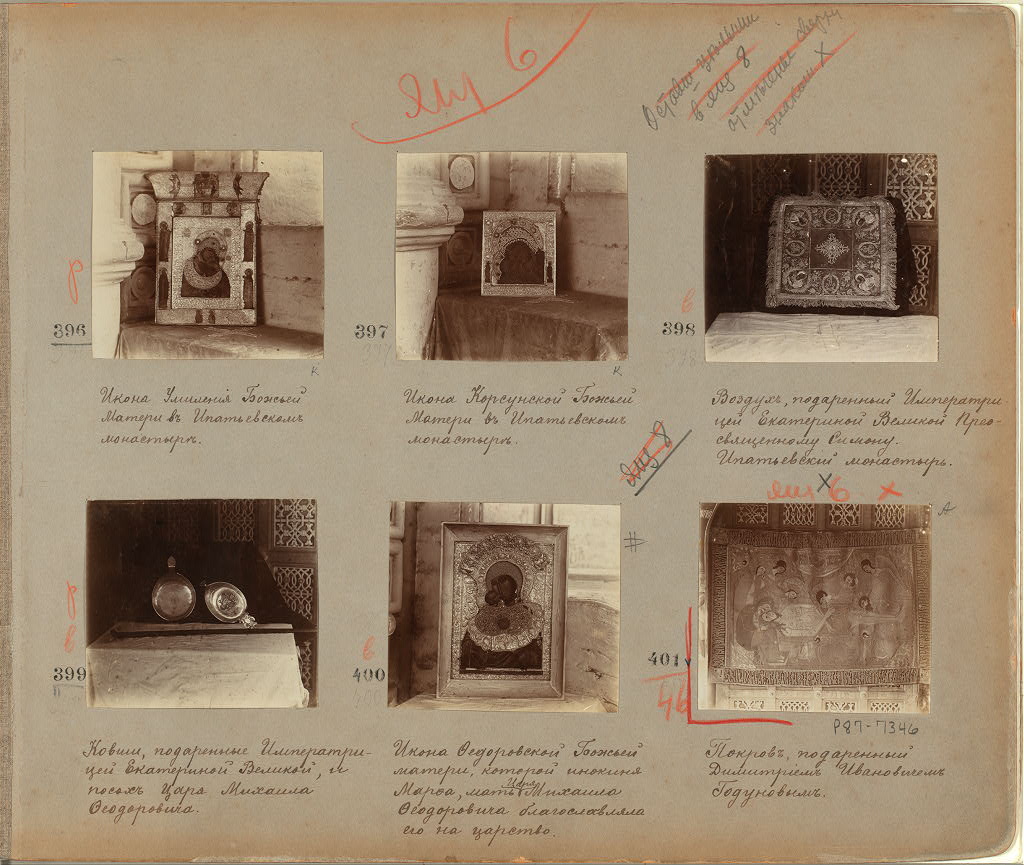 Ящ 6
в ящ 8
знаком X
р
396
К
Икона Умиленія Божьей
Матери въ Ипатьевскомъ
монастырѣ.
397
К
Икона Корсунской Божьей
Матери въ Ипатьевскомъ
монастырѣ.
в
398
Воздухъ, подаренный Императри-
цей Екатериной Великой Прео-
священному Симону.
Ипатьевскій монастырь.
р
в
399
Ковши, подаренные Императри-
цей Екатериной Великой, и
посохъ Царя Михаила
Ѳеодоровича.
ящ 8
#
в
400
Икона Ѳеодоровской Божьей
матери, которой инокиня
Марѳа, мать Царя Михаила
Ѳеодоровича благословляла
его на царство.
ящ 6 X
X
А
401
46
P87-7346
Покровъ, подаренный
Димитріемъ Ивановичемъ
Годуновымъ.